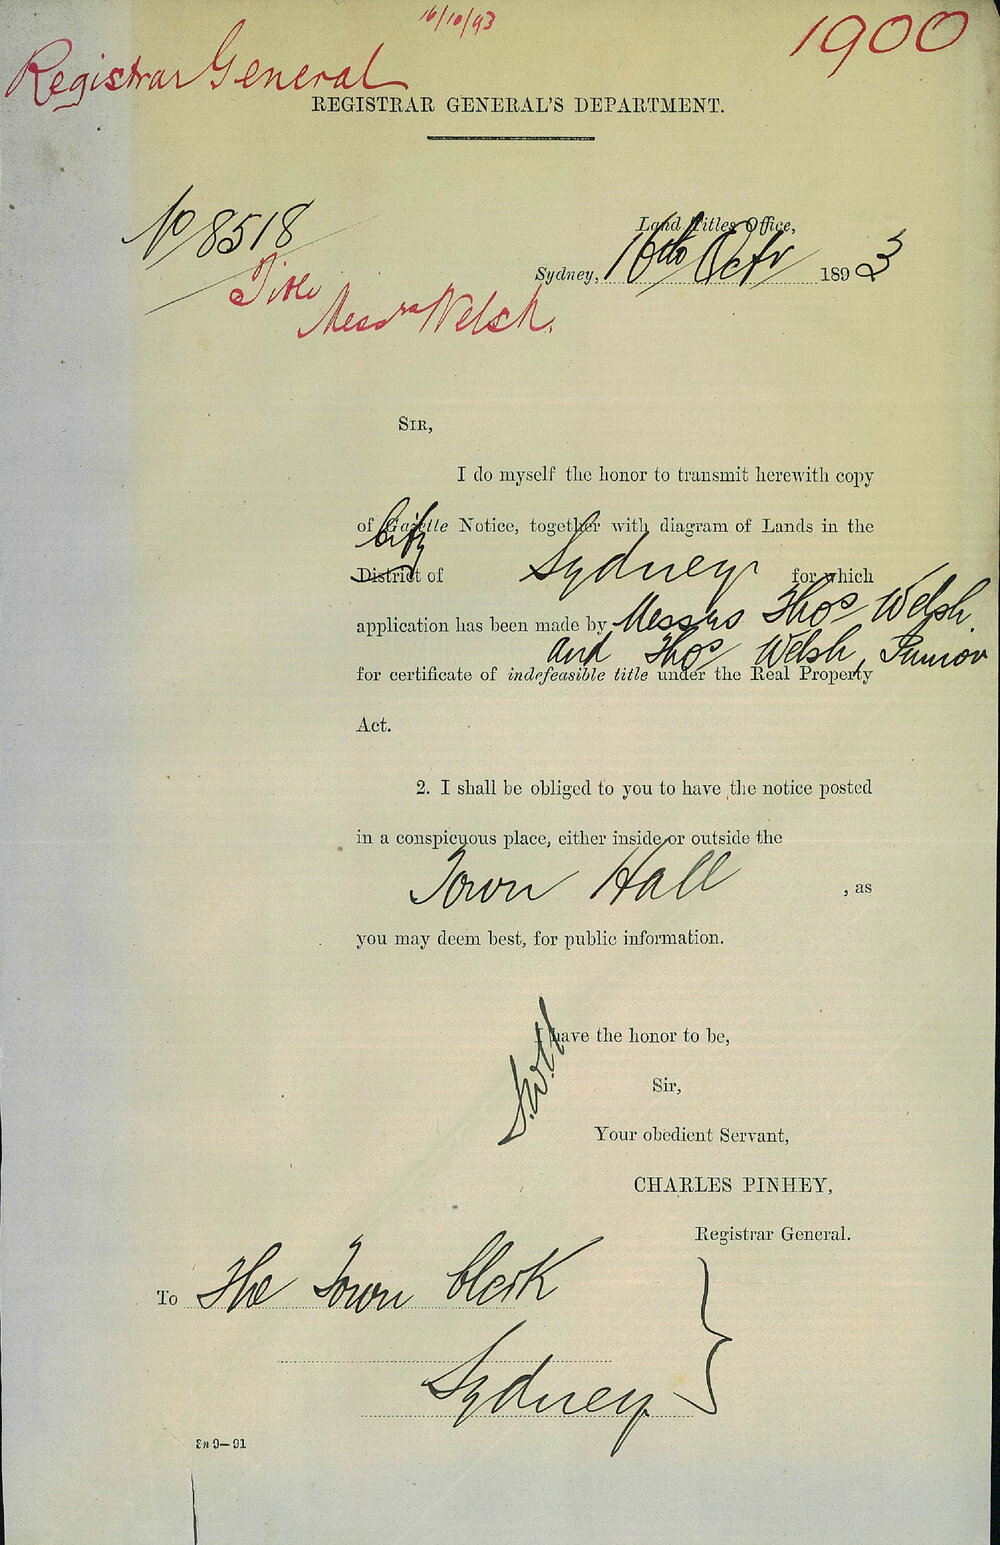 16/10/93
1900
Registrar General
REGISTRAR GENERAL'S DEPARTMENT.
No 8518
Land Titles Office,
Sydney, 16th Octr 1893
Title
Messrs Welsh.
SIR,
I do myself the honor to transmit herewith copy
of Gazette Notice, together with diagram of Lands in the
City
District of Sydney for which
application has been made by Messrs Thos Welsh
and Thos Welsh, Junior
for certificate of indefeasible title under the Real Property
Act.
2. I shall be obliged to you to have the notice posted
in a conspicuous place, either inside or outside the
Town Hall , as
you may deem best, for public information.
I have the honor to be,
Sir,
Your obedient Servant,
CHARLES PINHEY,
Registrar General.
To The Town Clerk
Sydney
9—91